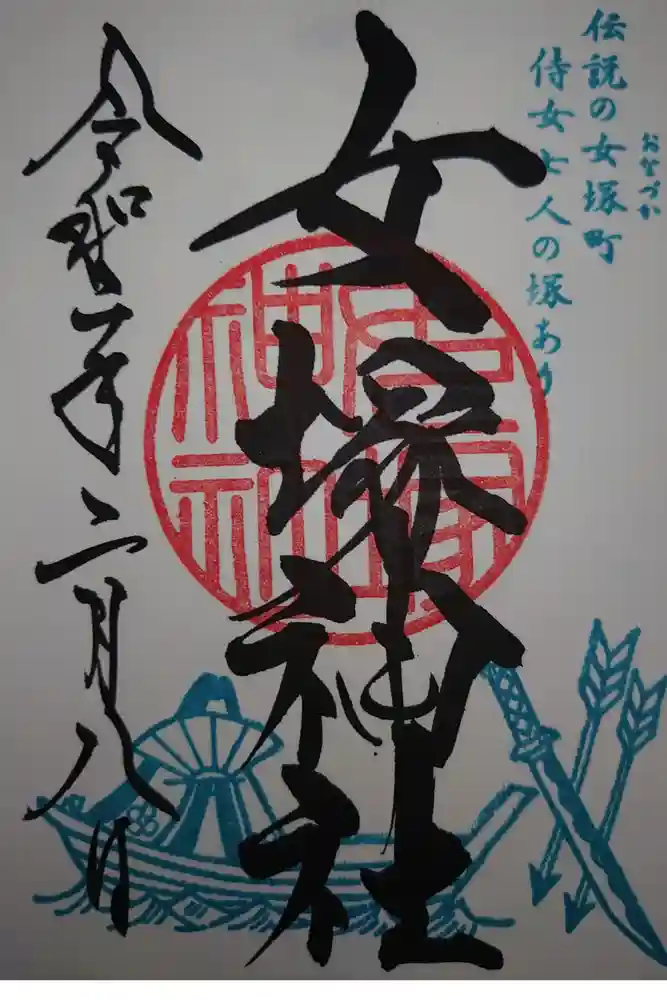 おなづか
伝説の女塚町
侍女七人の塚あり
女塚神社
令和二年二月八日